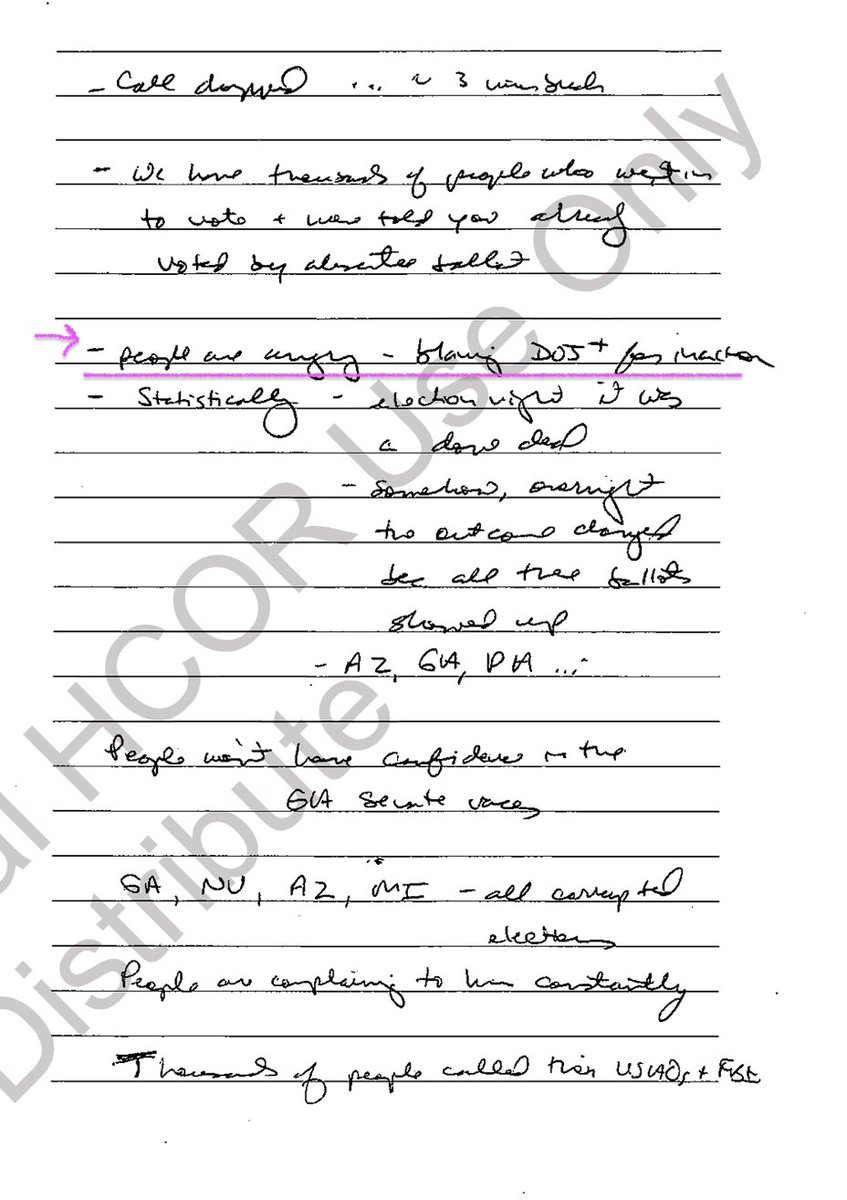 - Call dropped ... ~ 3 min
- We have thousands of people who went in
to vote + were told you already
voted by absentee ballot
- people are angry - blaming DOJ + for inaction
- Statistically - election night it was
a done deal
- Somehow, overnight
the outcome changed
bec all these ballots
showed up
- AZ, GA, PA ...
People won't have confidence in the
GA Senate races
GA, NV, AZ, MI - all corrupted
elections
People are complaining to him constantly
Thousands of people called their USAOs + FBI
al HCOR Use Only
Distribute